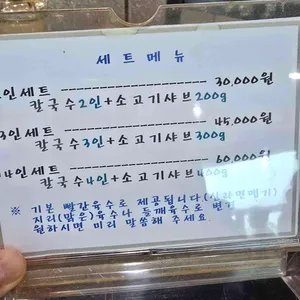 세트메뉴
2인세트 ---------------------- 30,000원
칼국수2인+소고기샤브200g
3인세트 ---------------------- 45,000원
칼국수3인+소고기샤브300g
4인세트 ---------------------- 60,000원
칼국수4인+소고기샤브400g
※ 기본 빨간육수로 제공됩니다.(신라면맵기)
지리(맑은)육수나 들깨육수로 변경
원하시면 미리 말씀해 주세요.